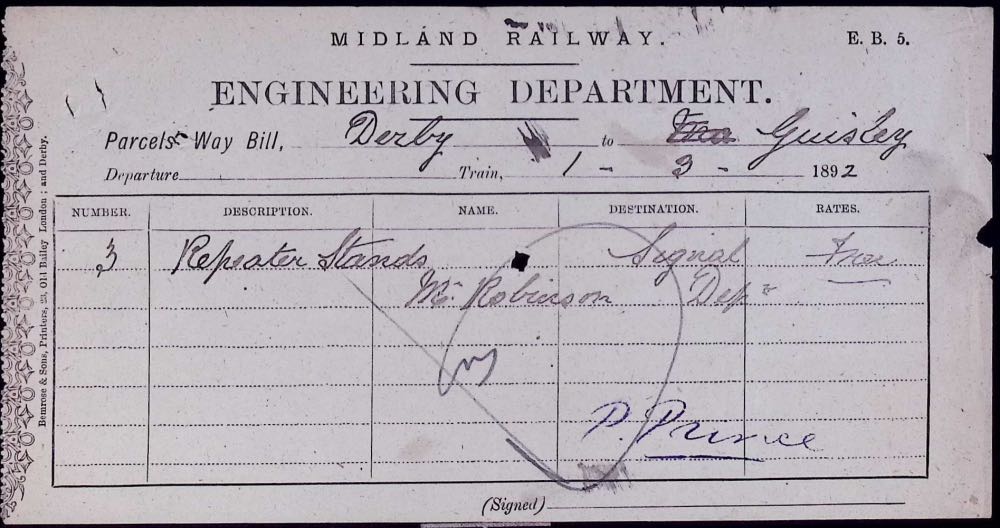 MIDLAND RAILWAY. E. B. 5.
ENGINEERING DEPARTMENT.
Parcels Way Bill, Derby to Guisley
Departure Train, 1 - 3 - 1892
NUMBER. DESCRIPTION. NAME. DESTINATION. RATES.
3 Repeater Stands Signal Free
Mr. Robinson Dept
P. Prince
(Signed)
Bemrose & Sons, Printers, 23, Old Bailey London; and Derby.